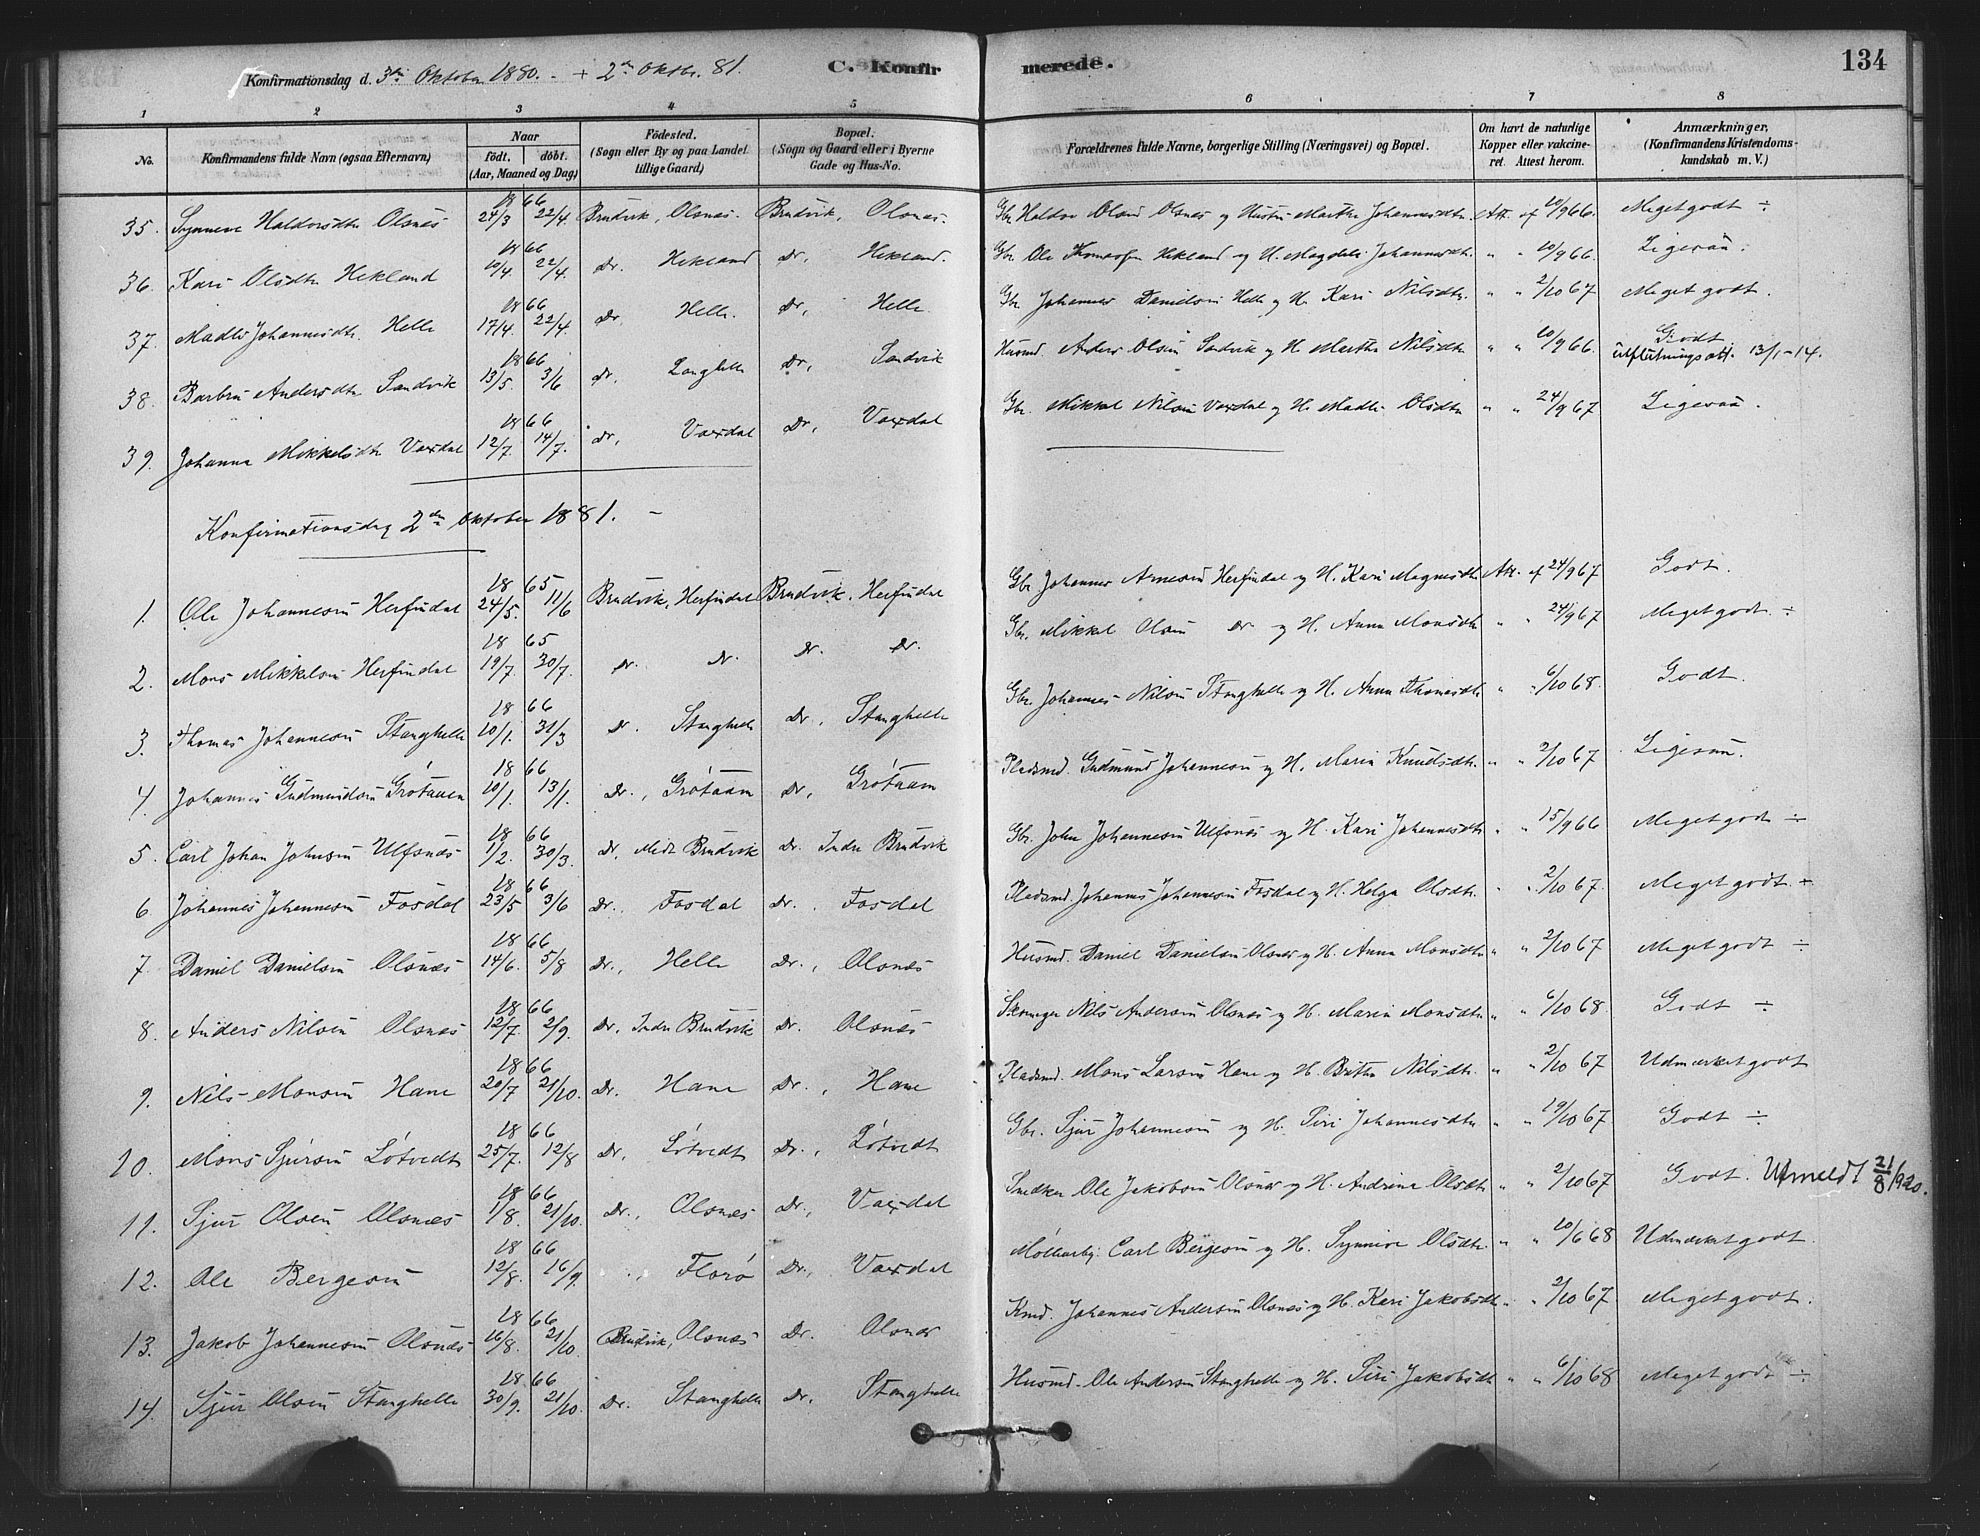 134
Konfirmationsdag d. 3die Oktober 1880. - + 2den Oktbr. 81.
C. Konfirmerede.
1 2 3 4 5 6 7 8
No. | Konfirmandens fulde Navn (ogsaa Efternavn) | Naar født. døbt. (Aar, Maaned og Dag) | Fødested. (Sogn eller By og paa Landet tillige Gaard) | Bopæl. (Sogn og Gaard eller i Byerne Gade og Hus-No. | Forældrenes fulde Navne, borgerlige Stilling (Næringsvei) og Bopæl. | Om havt de naturlige Kopper eller vakcineret. Attest herom. | Anmærkninger, (Konfirmandens Kristendomskundskab m. V.)
35. Synneve Haldorsdtr Olsnæs | 1866 24/3 22/4. | Brudvik, Olsnæs. | Brudvik, Olsnæs. | Gbr Haldor Olsnæs og Hustru Martha Johannesdtr. | Att. af 20/9 66. | Meget godt ÷
36. Kari Olsdtr Hekland | 1866 10/4. 22/4. | Dr. Hekland | Dr, Hekland. | Gbr. Ole Hekland og H. Magdeli Johannesdtr. | " " 20/9 66. | Ligesaa.
37. Madli Johannesdtr. Helle | 1866 17/4. 22/4. | Dr. Helle. | Dr, Helle. | Gbr. Johannes Danielsen Helle og H. Kari Nilsdtr. | " " 2/10 67 | Meget godt.
38. Barbru Andersdtr Sandvik | 1866 13/5. 3/6 | Dr. Langhelle | Dr, Sandvik | Husmd. Anders Olsen Sandvik og H. Martha Nilsdtr | " " 20/9 66. | Godt utflutningsatt. 13/1-14.
39. Johanna Mikkelsdtr Vaxdal | 1866 12/7. 14/7. | Dr, Vaxdal | Dr, Vaxdal | Gbr. Mikkel Nilsen Vaxdal og H. Madli Olsdtr | " " 24/9 67 | Ligesaa.
Konfirmationsdag 2den Oktober 1881. -
1. Ole Johannesen Herfindal | 1865 24/5. 11/6 | Brudvik, Herfindal | Brudvik, Herfindal | Gbr Johannes Arnesen Herfindal og H. Kari Magnesdtr | Att. af 24/9 67 | Godt.
2. Mons Mikkelsen Herfindal | 1865 19/7. 30/7. | Dr. Dr. | Dr. Dr. | Gbr. Mikkel Olsen Dr og H. Anna Monsdtr | " " 24/9 67 | Meget godt ÷
3. Thomas Johannesen Stanghelle | 1866 10/1. 31/3 | Dr. Stanghelle | Dr, Stanghelle | Gbr. Johannes Nilsen Stanghelle og H. Anna Thomasdtr | " " 6/10 68. | Godt.
4. Johannes Gudmundsen Grøtaaen | 1866 10/1. 13/1. | Dr., Grøtaaen | Dr, Grøtaaen | Pladsmd. Gudmund Johannesen og H. Maria Knudsdtr. | " " 2/10 67 | Ligesaa.
5. Carl Johan Johnsen Ulfsnæs | 1866 1/2. 30/3. | Dr, Midt Brudvik | Dr. Indre Brudvik | Gbr. John Johannesen Ulfsnæs og H. Kari Johannesdtr | " " 15/9 66 | Meget godt ÷
6. Johannes Johannesen Fosdal | 1866 23/5 3/6 | Dr., Fosdal | Dr., Fosdal | Pladsmd. Johannes Johannesen Fosdal og H. Helga Olsdtr. | " " 2/10 67. | Meget godt. +
7. Daniel Danielsen Olsnæs | 1866 14/6. 5/8 | Dr., Helle | Dr., Olsnæs | Husmd. Daniel Danielsen Olsnæs og H. Anna Monsdtr | " " 2/10 67 | Meget godt ÷
8. Anders Nilsen Olsnæs | 1866 12/7. 2/9. | Dr, Indre Brudvik | Dr. Olsnæs | Nils Andersen Olsnæs og H. Maria Monsdtr | " " 6/10 68. | Godt ÷
9. Nils Monsen Hane | 1866 20/7 21/10. | Dr. Hane | Dr., Hane | Pladsmd. Mons Larsen Hane og H. Britha Nilsdtr. | " " 2/10 67 | Udmærket godt
10. Mons Sjursen Løtvedt | 1866 25/7. 12/8 | Dr, Løtvedt | Dr., Løtvedt | Gbr. Sjur Johannesen og H. Siri Johannesdtr | " " 19/10 67 | Godt ÷
11. Sjur Olsen Olsnæs | 1866 1/8. 21/10. | Dr., Olsnæs | Dr, Vaxdal | Snedker Ole Jakobsen Olsnæs og H. Andrina Olsdtr | " " 2/10 67 | Godt. Utmeldt 21/8 1920.
12. Ole Bergesen | 1866 12/8. 16/9. | ., Florø | Dr, Vaxdal | Møllearb. Carl Bergesen og H. Synneve Olsdtr. | " " 20/6 68 | Udmærket godt.
13. Jakob Johannesen Olsnæs | 1866 16/8. 21/10 | Brudvik, Olsnæs | Dr. Olsnæs | Kmd. Johannes Andersen Olsnæs og H. Kari Jakobsdtr | " " 2/10 67 | Meget godt.
14. Sjur Olsen Stanghelle | 1866 30/9. 21/10. | Dr. Stanghelle | Dr. Stanghelle | Husmd. Ole Andersen Stanghelle og H. Siri Jakobsdtr | " " 6/10 68 | Meget godt ÷